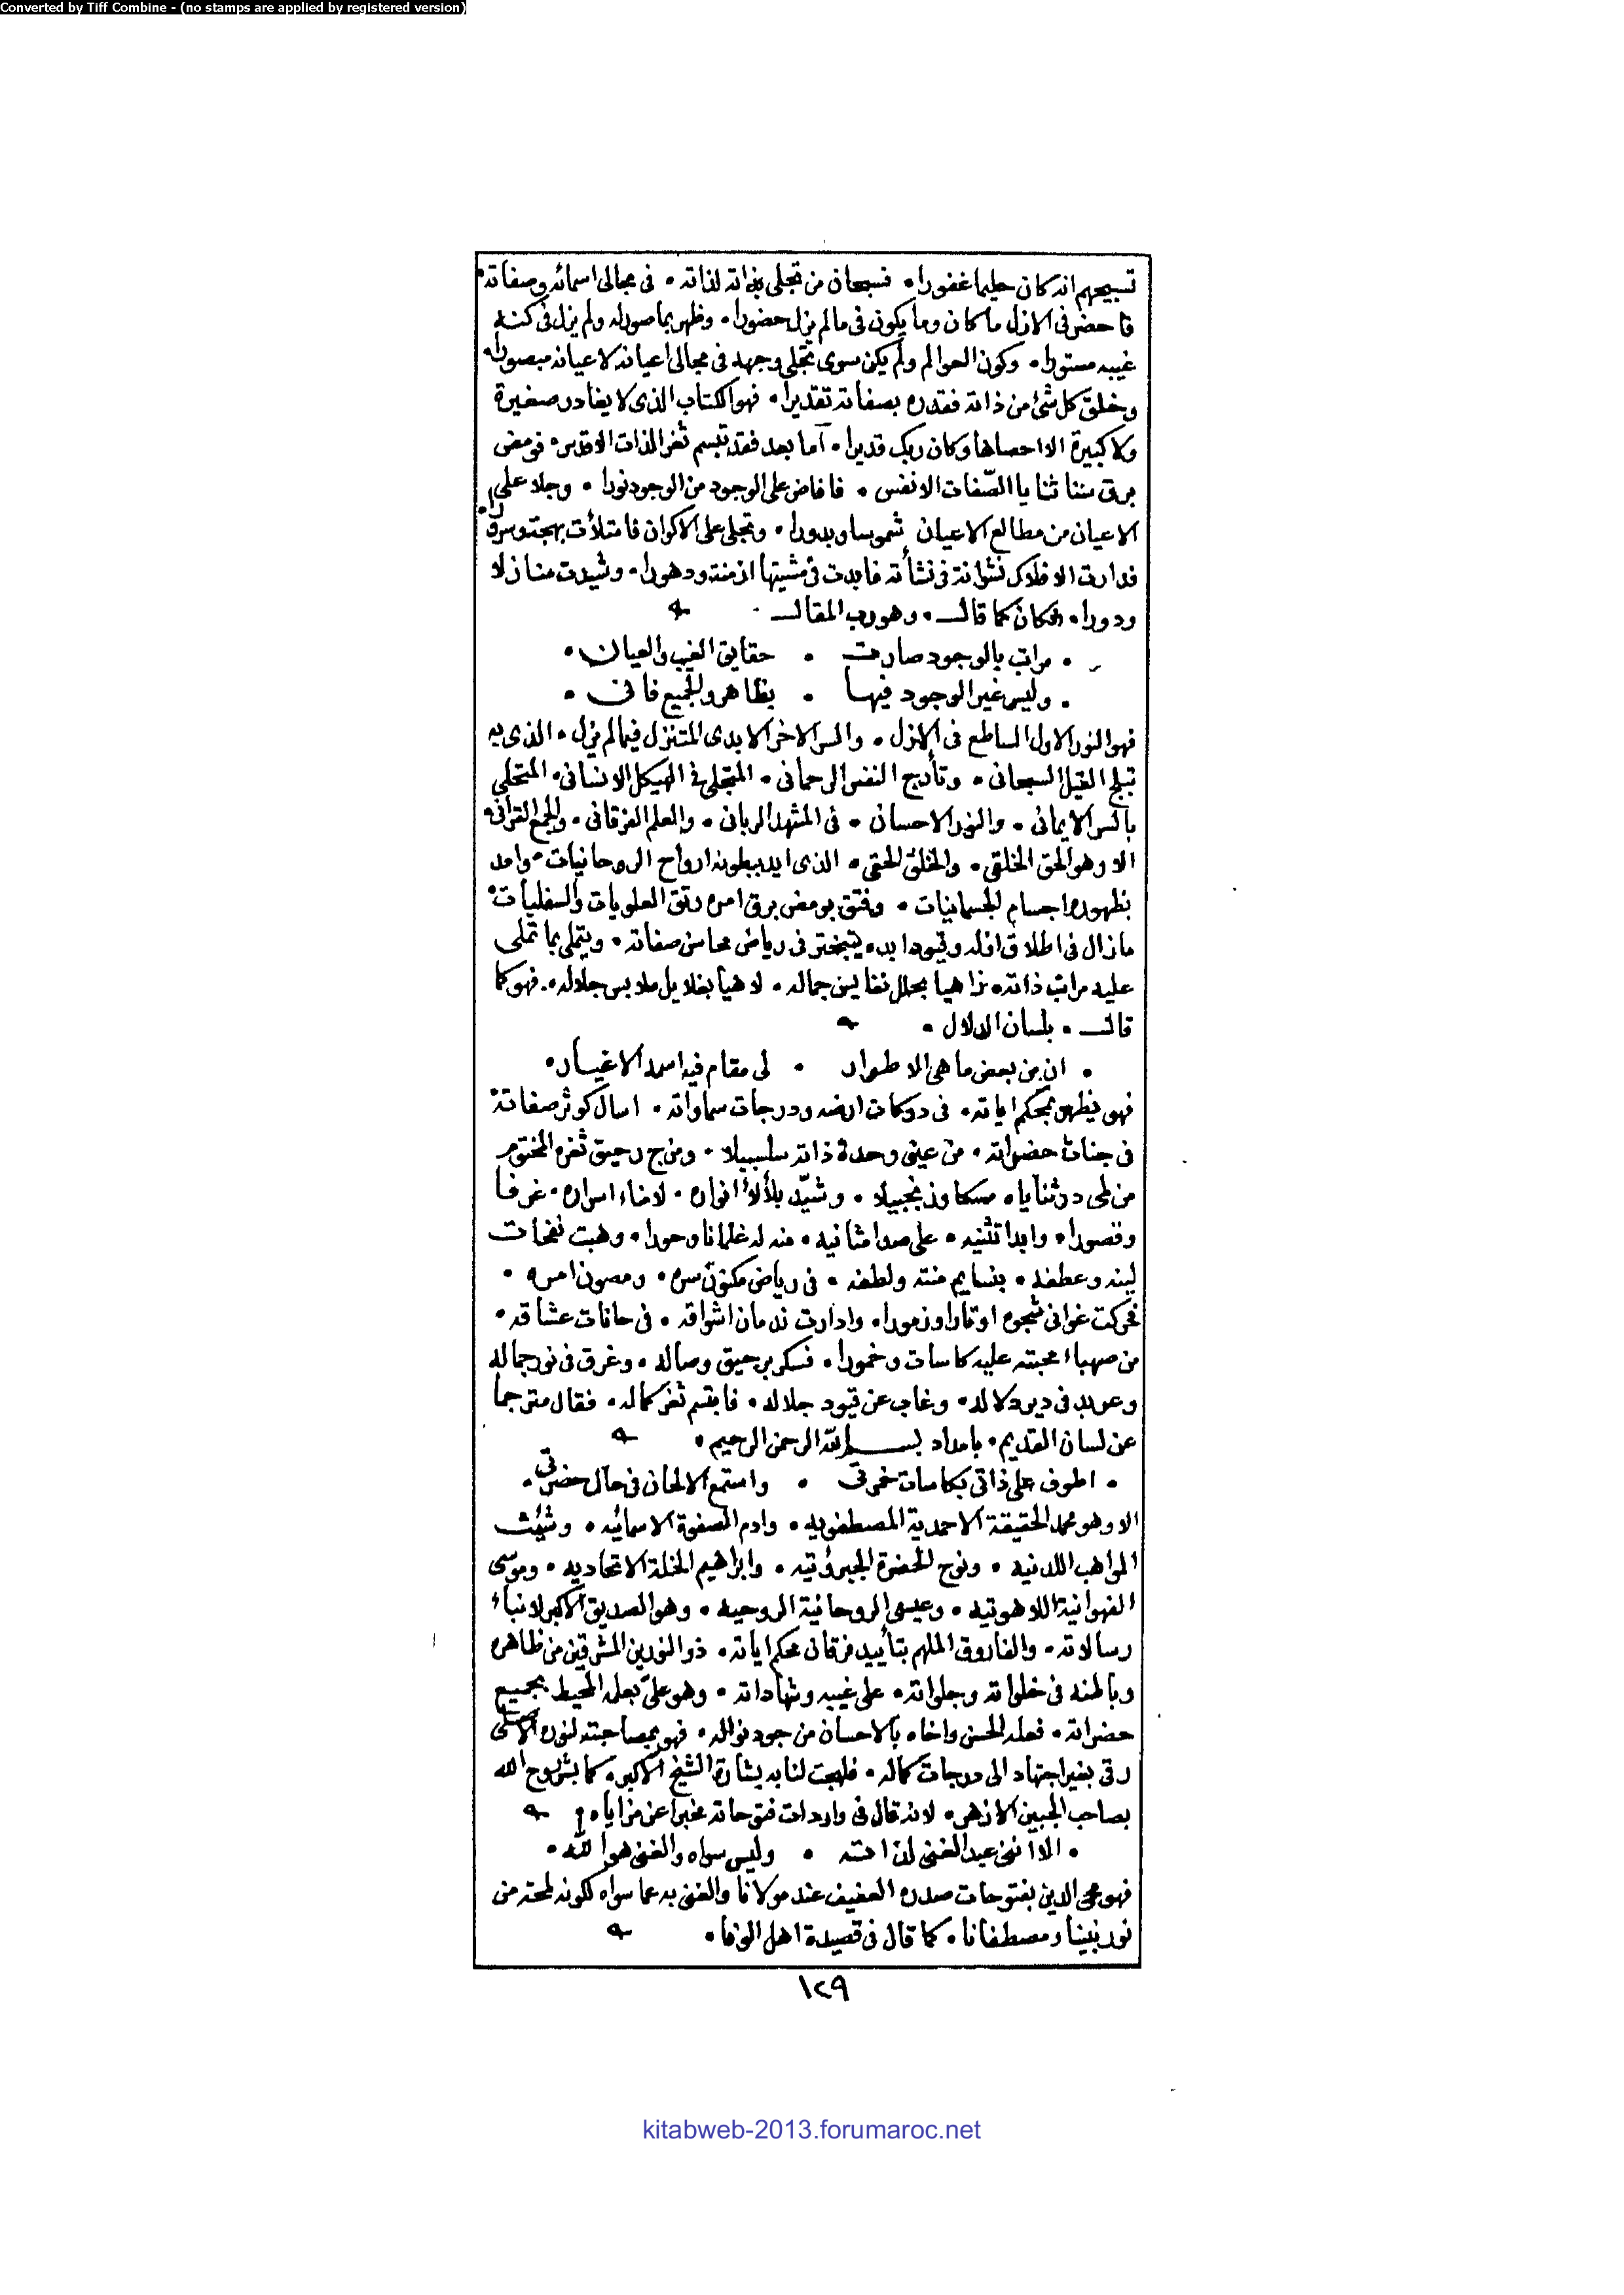 Converted by Tiff Combine - (no stamps are applied by registered version)
تسبيحهم انه كان حليما غفورا • فسبحان من تجلى بذاته لذاته • فى مجالى اسمائه وصفاته •
فاحضر فى الازل ما كان وما يكون فى ما لم يزل حضورا • وظهر بما صوره ولم يزل فى كنه
غيبه مستورا • وكون العوالم ولم يكن سوى تجلى وجهه فى مجالى اعيانه لاعيانه مبصورا •
وخلق كل شئ من ذاته فقدره بصفاته تقديرا • فهو الكتاب الذى لا يغادر صغيرة
ولا كبيرة الا احصاها وكان ربك قديرا • اما بعد فقد تبسم ثغر الذات الاقدس • فومض
برق سنا ثنايا الصّفات الانفس • فافاض على الوجود من الوجود نورا • وجلا على
الاعيان من مطالع الاعيان شموسا وبدورا • وتجلى على الاكوان فامتلأت بهجة وسرورا •
فدارت الافلاك نشوانة فى نشأته فابدت فى مشيتها ازمنة ودهورا • وشيدت منازلا
ودورا • فكان كما قال • وهو رب المقال
• مراتب بالوجود صارت • حقايق الغيب والعيان •
• وليس غير الوجود فيها • بظاهر والجميع فانى •
فهو النور الاول الساطع فى الازل • والسر الاخر الابدى المتنزل فيما لم يزل • الذى به
تبلج الفيل السبحانى • وتأرج النفس الرحمانى • المتجلى فى الهيكل الانسانى • المتحلى
بالسر الايمانى • والنور الاحسانى • فى المشهد الربانى • والعلم الفرقانى • والجمع القرآنى •
الا وهو الحق الخلقى • والخلق الحقى • الذى ايد ببطونه ارواح الروحانيات • وامد
بظهوره اجسام الجسمانيات • وفتق بومض برق امره رتق العلويات والسفليات •
مازال فى اطلاق ازله وقيود ابده يتبختر فى رياض محاسن صفاته • ويتملى بما تملى
عليه مراتب ذاته • زاهيا بحلل نفايس جماله • لاهيا بغلايل ملابس جلاله • فهو كما
قال • بلسان الدلال •
• ان من بعض ما هى الاطوار • لى مقام فيه اسمه الاغيار •
فهو يظهر بمحكم اياته • فى دركات ارضه ودرجات سماواته • اسال كوثر صفاته
فى جنات حضراته • من عينى وحدة ذاته سلسبيلا • ومزج رحيق ثغره المختوم
من لمى در ثناياه مسكا وزنجبيلا • وشيّد بلألأ انواره • لاخفاء اسراره • غرفا
وقصورا • وابدا تثنيه • على صدا مثانيه • منه له غلمانا وحورا • وهبت نفحات
لينه وعطفه • بنسايم منته ولطفه • فى رياض مكنون سره • ومصون امره •
فحركت غوانى شجوه اوتارا وزمورا • وادارت ندمان اشواقه • فى حانات عشاقه •
من صهباء محبته عليه كاسات وخمورا • فسكر برحيق وصاله • وغرق فى نور جماله
وعربد فى دير دلاله • وغاب عن قيود جلاله • فابتسم ثغر كماله • فقال مترجما
عن لسان القديم • بامداد بسم الله الرحمن الرحيم •
• اطوف على ذاتى بكاسات خمرتى • واستمع الالحان فى حال حضرتى •
الا وهو محمد الحقيقة الاحمدية المصطفويه • وادم الصفوة الاسمائيه • وشيث
المواهب اللدنيه • ونوح الحضرة الجبروتيه • وابراهيم الخلة الاتحاديه • وموسى
الفهوانية اللاهوتيه • وعيسى الروحانية الروحيه • وهو الصديق الاكبر لانباء
رسالاته • والفاروق الملهم بتأييد فرقان محكم اياته • ذو النورين المشرقين من ظاهره
وباطنه فى خلواته وجلواته • على غيبه وشهاداته • وهو على بعله المحيط بجميع
حضراته • فعله الحسن واخاه بالاحسان من جود نواله • فهو بمصاحبته لنوره الاصلى
رقى بغير اجتهاد الى درجات كماله • فلهجت لنا به بشارة الشيخ الاكبر • كما بشر روح الله
بصاحب الجبين الازهر • لانه قال فى واردات فتوحاته مخبرا عن مزاياه •
• الا اننى عبد الغنى لذاته • وليس سواه والغنى هو الله •
فهو محى الدين بفتوحات صدره العفيف عند مولانا والغنى به عما سواه لكونه لمحة من
نور نبينا ومصطفانا • كما قال فى قصيدة اهل الوفا •
١٢٩
kitabweb-2013.forumaroc.net